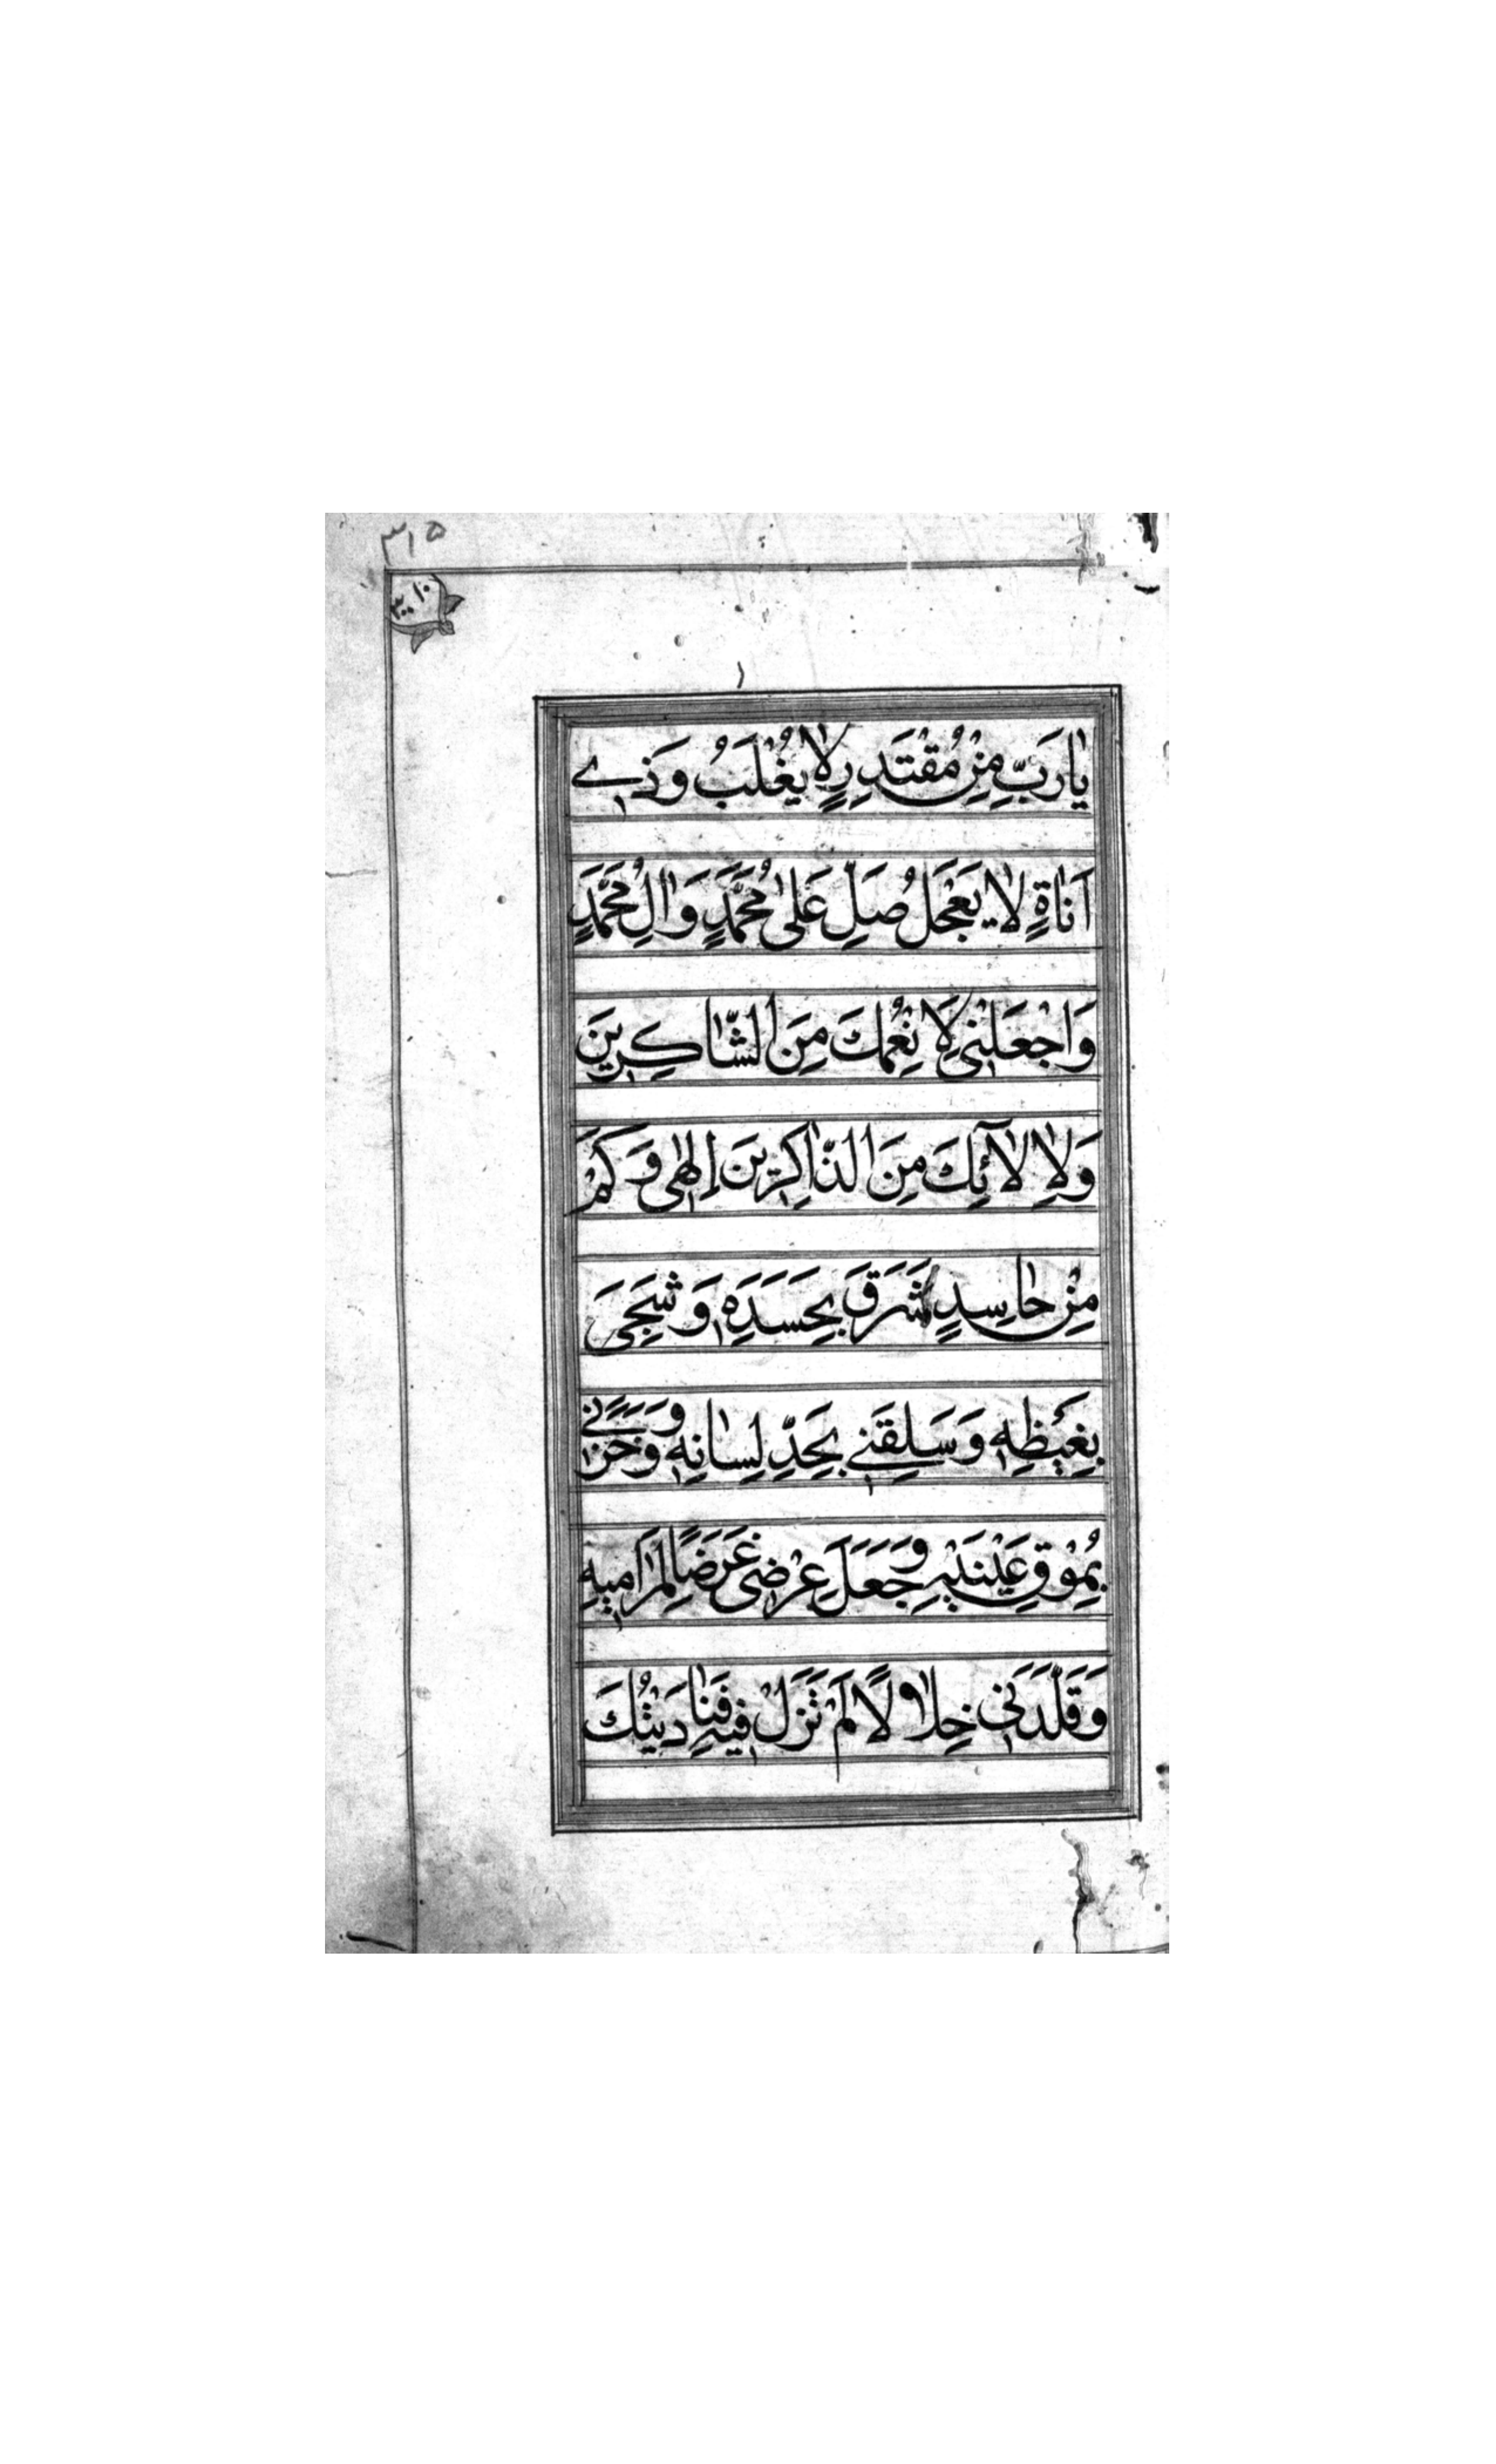 ۳۱۵
يٰا رَبِّ مِنْ مُقْتَدِرٍ لٰا يُغْلَبُ وَذٖے
اَنٰاةٍ لٰا يَعْجَلُ صَلِّ عَلىٰ مُحَمَّدٍ وَاٰلِ مُحَمَّدٍ
وَاجْعَلْنٖى لِاَنْعُمِكَ مِنَ الشّٰاكِرٖينَ
وَلِاٰلٰآئِكَ مِنَ الذّٰاكِرٖينَ اِلٰهٖى وَكَمْ
مِنْ حٰاسِدٍ شَرَقَ بِحَسَدِهٖ وَشَجِىَ
بِغَيْظِهٖ وَسَلَقَنٖے بِحَدِّ لِسٰانِهٖ وَوَخَزَنٖے
بِمُوْقِ عَيْنَيْهِ وَجَعَلَ عِرْضٖى غَرَضًا لِمَرٰامٖيهِ
وَقَلَّدَنٖى خِلٰالًا لَمْ تَزَلْ فٖيهِ فَنٰادَيْتُكَ